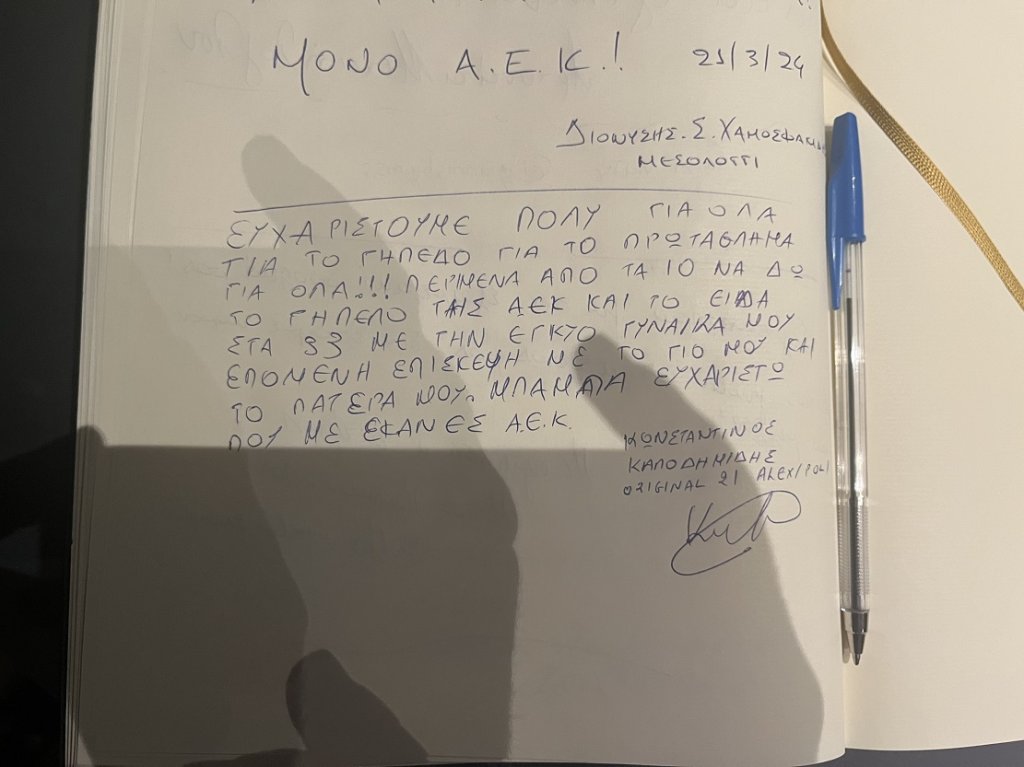 ΜΟΝΟ Α.Ε.Κ.! 21/3/24
ΔΙΟΝΥΣΗΣ. Σ.
ΜΕΣΟΛΟΓΓΙ
ΕΥΧΑΡΙΣΤΟΥΜΕ ΠΟΛΥ ΓΙΑ ΟΛΑ
ΓΙΑ ΤΟ ΓΗΠΕΔΟ ΓΙΑ ΤΟ ΠΡΩΤΑΘΛΗΜΑ
ΓΙΑ ΟΛΑ!!! ΠΕΡΙΜΕΝΑ ΑΠΟ ΤΑ 10 ΝΑ ΔΩ
ΤΟ ΓΗΠΕΔΟ ΤΗΣ ΑΕΚ ΚΑΙ ΤΟ ΕΙΔΑ
ΣΤΑ 33 ΜΕ ΤΗΝ ΕΓΚΥΟ ΓΥΝΑΙΚΑ ΜΟΥ
ΕΠΟΜΕΝΗ ΕΠΙΣΚΕΨΗ ΜΕ ΤΟ ΓΙΟ ΜΟΥ ΚΑΙ
ΤΟ ΠΑΤΕΡΑ ΜΟΥ. ΜΠΑΜΠΑ ΕΥΧΑΡΙΣΤΩ
ΠΟΥ ΜΕ ΕΚΑΝΕΣ Α.Ε.Κ.
ΚΩΝΣΤΑΝΤΙΝΟΣ
ΚΑΠΟΔΗΜΙΔΗΣ
ORIGINAL 21 ALEX/POLI